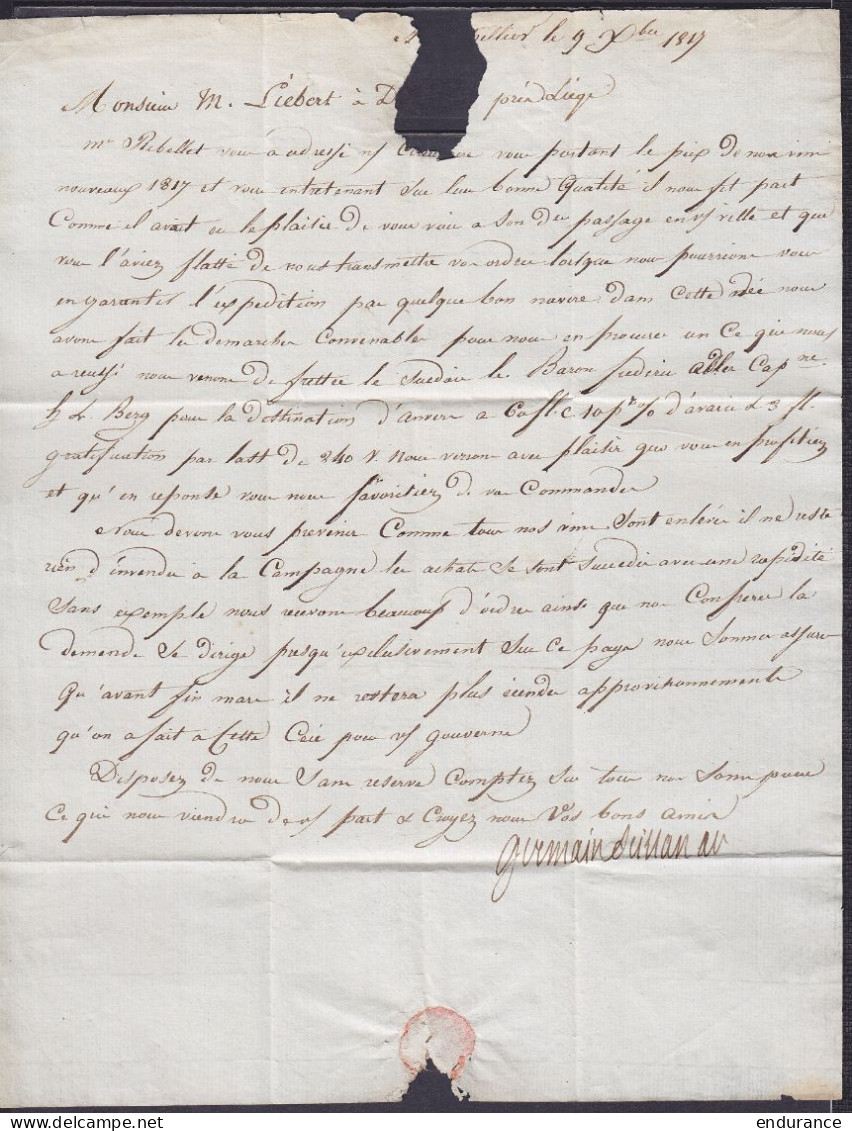 pellier le 9 Xbre 1817
Monsieur M. Liébert à D près Liége
mr Rebellet vous a adressé n/ Circulaire vous portant le prix de nos vins
nouveaux 1817 et vous entretenant sur leur bonne qualité il nous fit part
Comme il avait eu le plaisir de vous voir a son der passage en v/ ville et que
vous l'aviez flatté de nous transmettre vos ordres lorsque nous pourrions vous
en garantir l'expedition par quelque bon navire. dans Cette idée nous
avons fait les demarches Convenables pour nous en procurer un Ce qui nous
a reussi nous venons de fretter le suedois le Baron frederic adler Capne
h L. Berg pour la destination d'anvers a 10 pr % d'avarie & 3 fl.
gratification par last de 240 v. Nous verrons avec plaisir que vous en profitiez
et qu'en reponse vous nous favoritiez de vos Commandes
Nous devons vous prevenir Comme tous nos vins sont enlevés il ne reste
rien d'invendu à la Campagne les achats se sont succedés avec une rapidité
sans exemple nous recevons beaucoup d'ordres ainsi que nos Confreres la
demende se dirige presqu'exclusivement sur ce pays nous sommes assurés
qu'avant fin mars il ne restera plus approvisionnements
qu'on a fait à Cette Ceci pour v/ gouverne
Disposez de nous sans reserve Comptez sur tous nos soins pour
Ce qui nous viendra de v/ part & Croyez nous Vos bons amis
germain
endurance